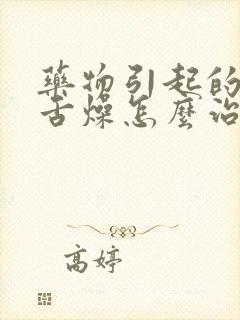 藥物引起的
舌燥怎麼治
高婷